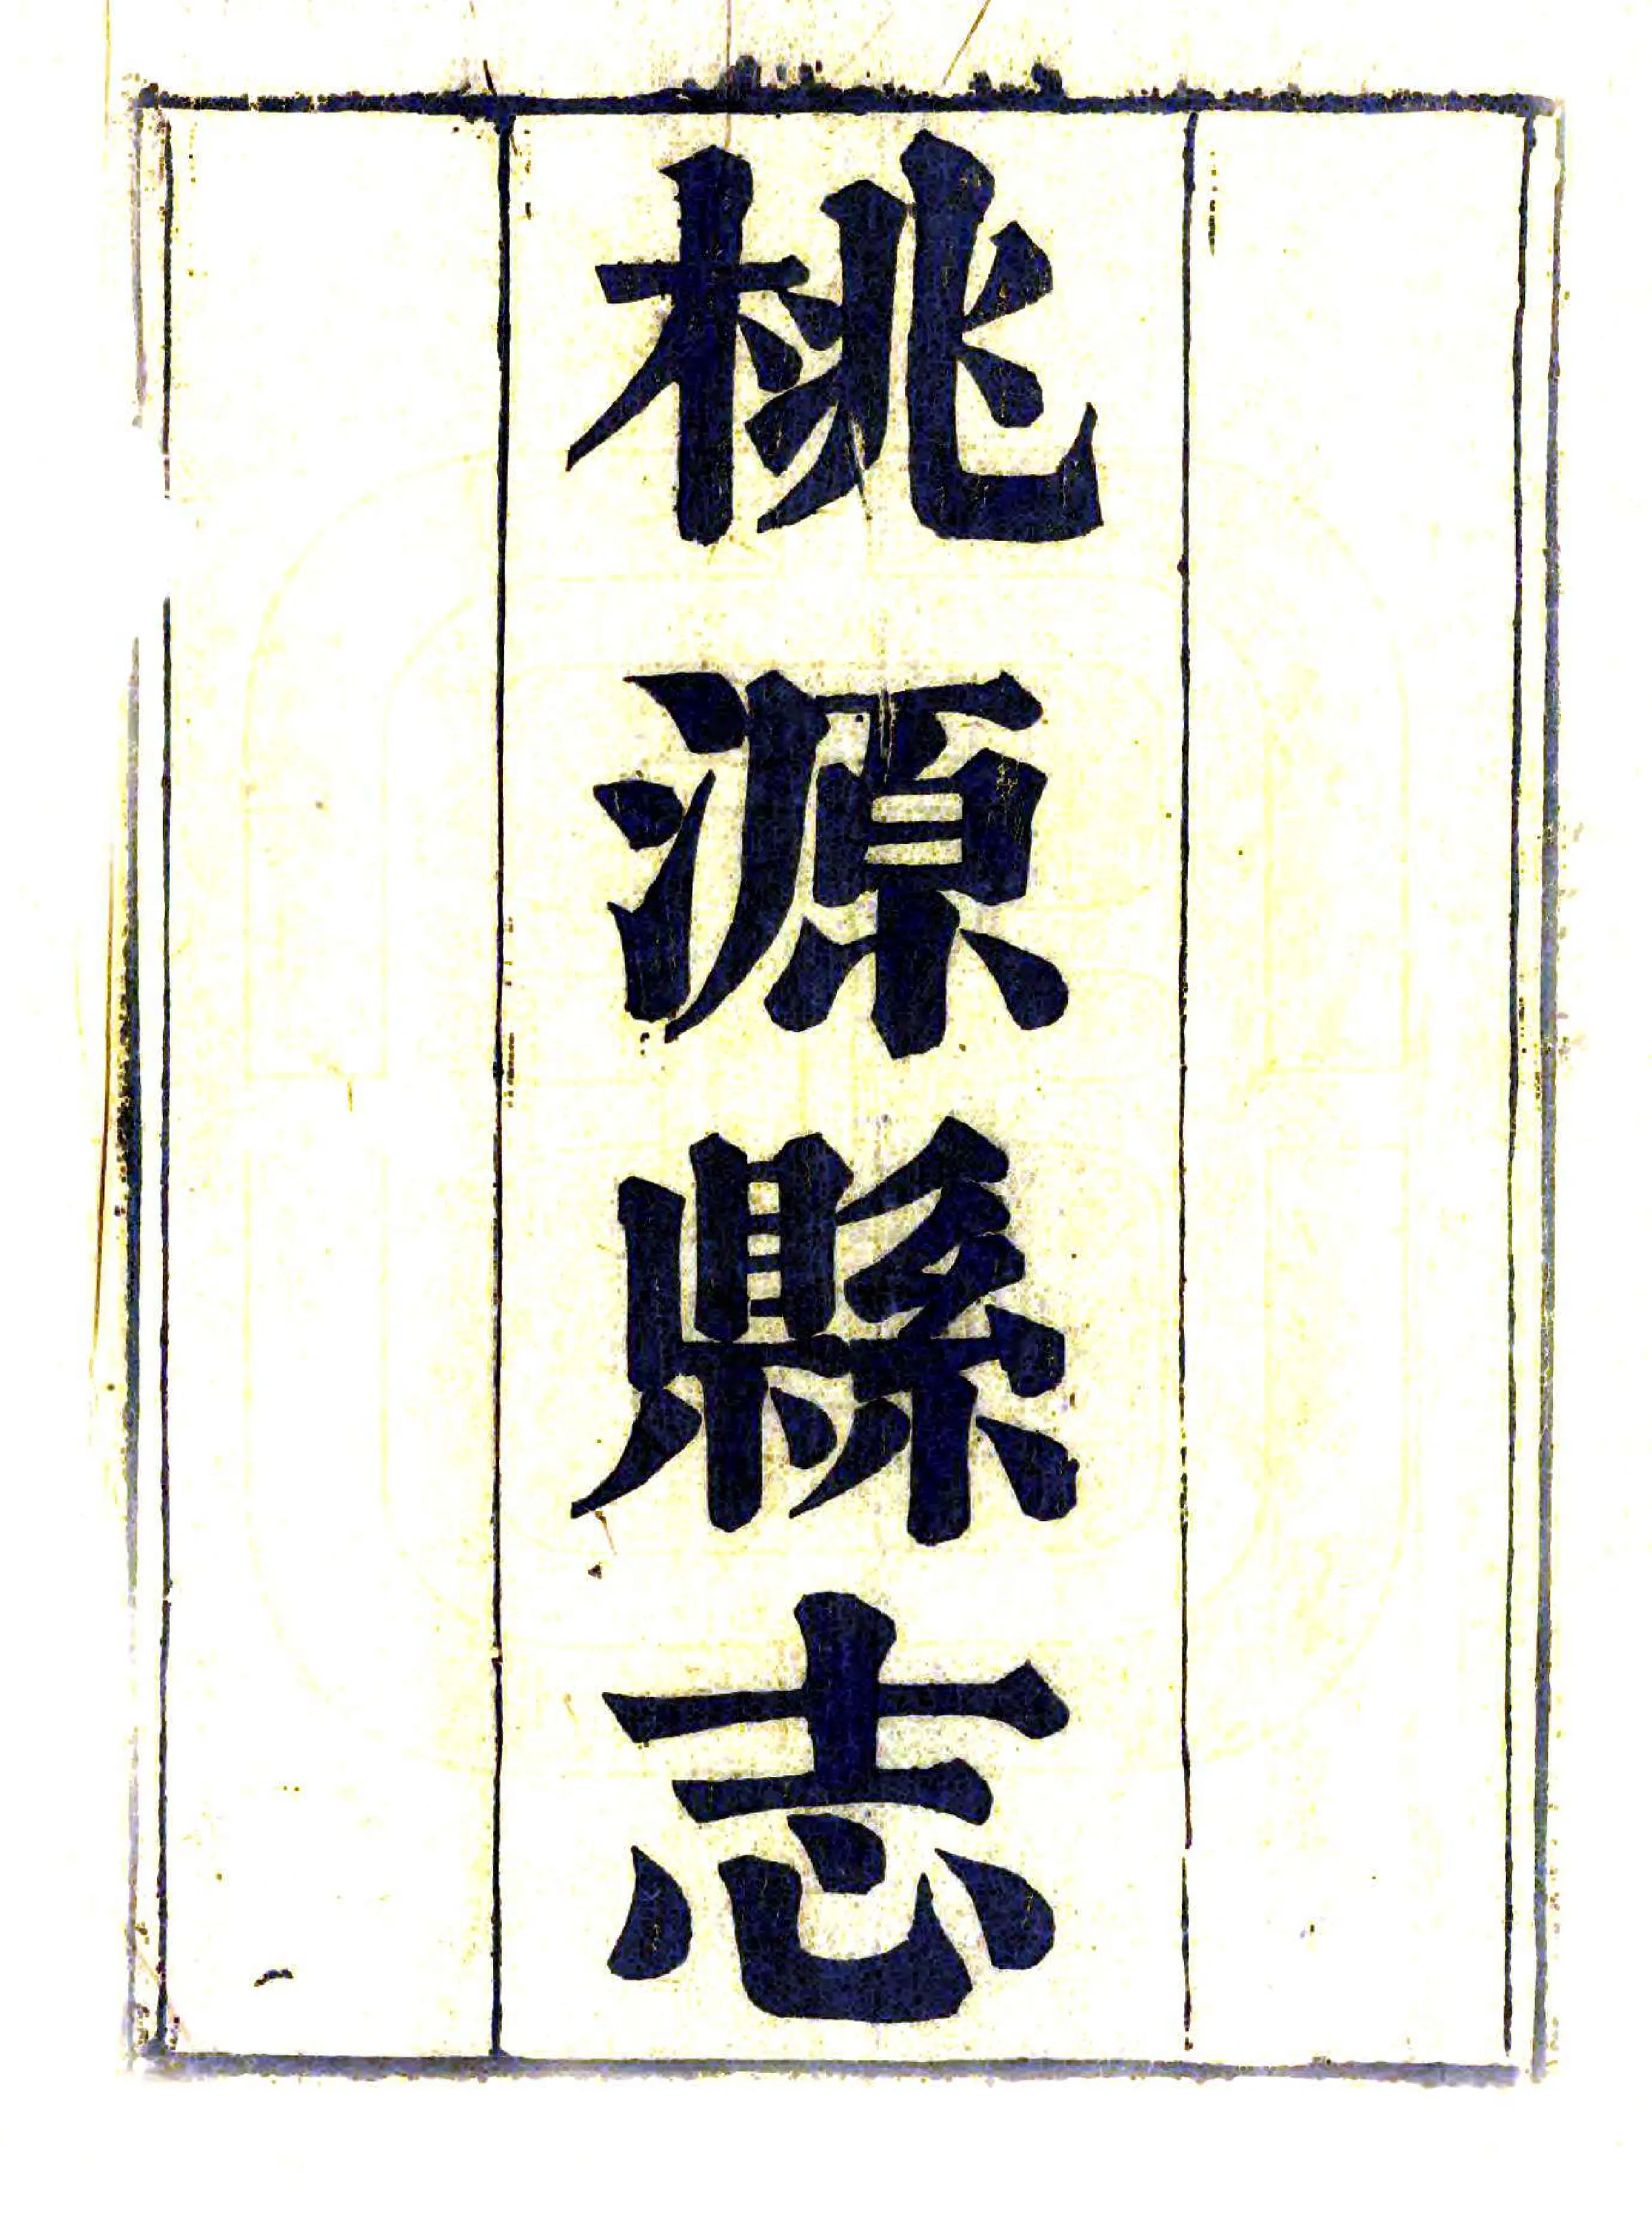 桃源縣志